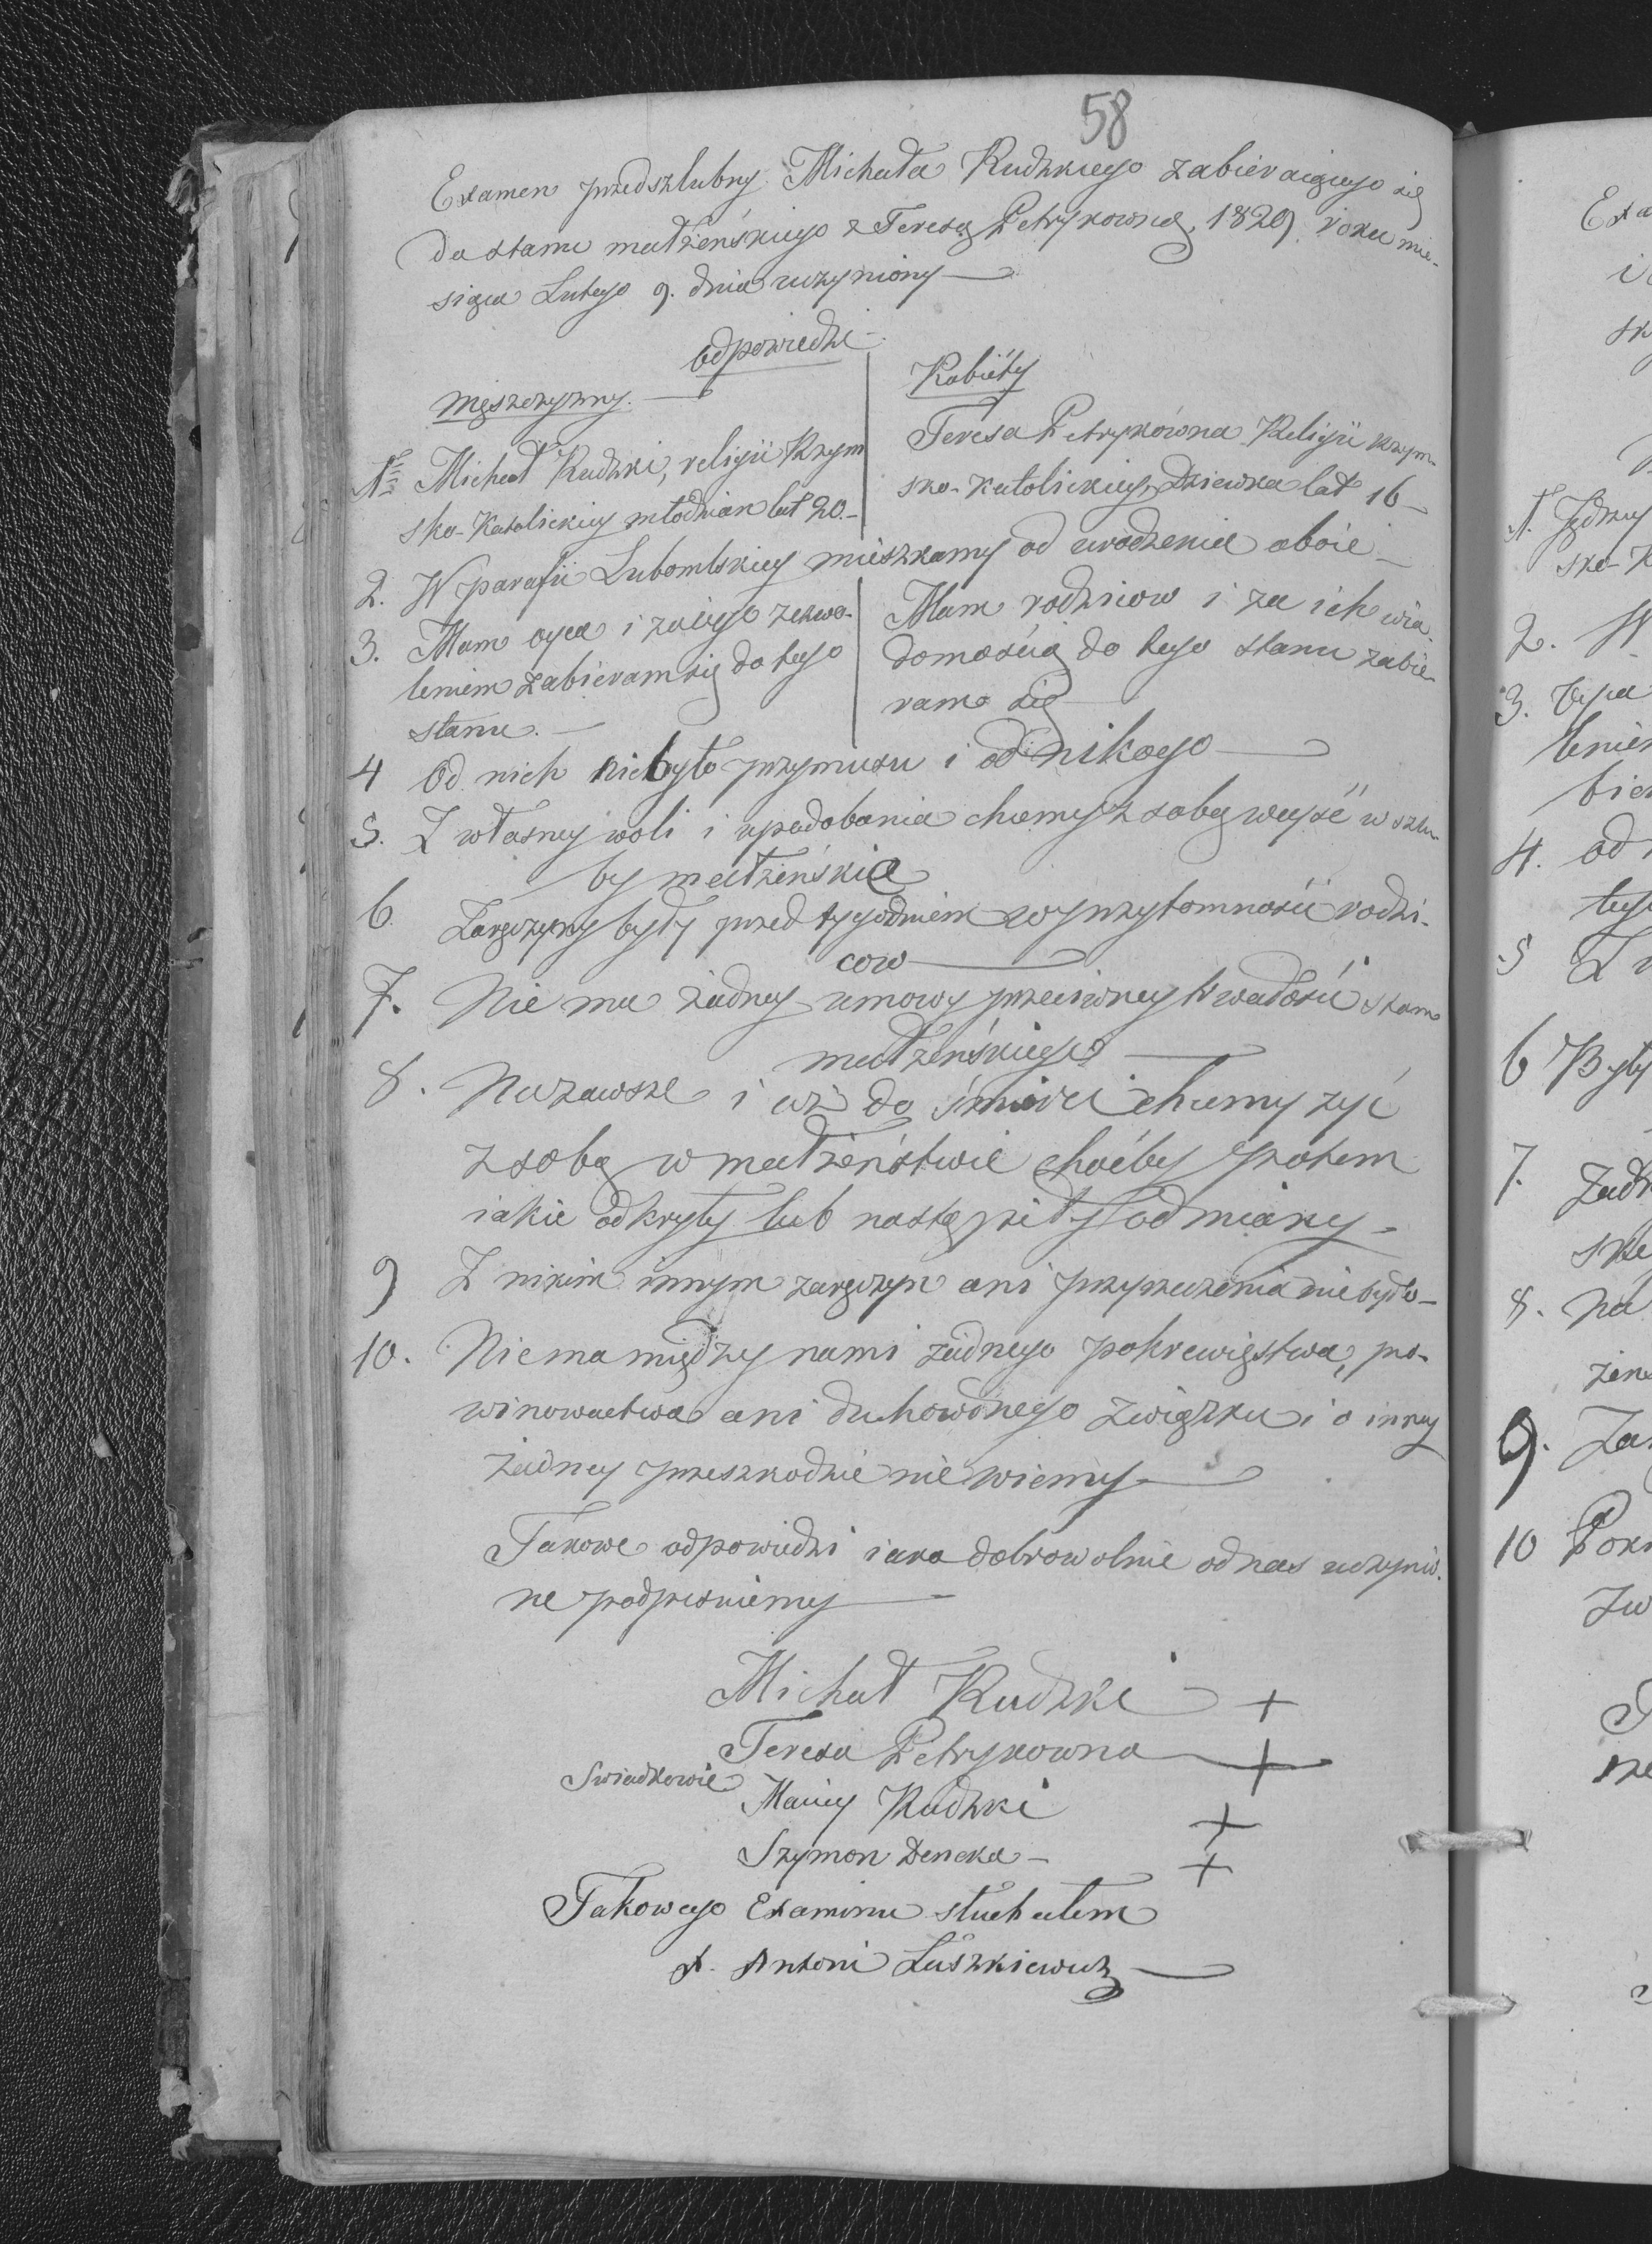 58
Examen przedszlubny Michała Rudzkiego zabieraiącego się
do stanu małżeńskiego z Teresą Petrykowną, 1829 roku mie-
siąca Lutego 9. dnia uczyniony
odpowiedzi
męszczyzny.
Kobiéty
1. Michał Rudzki, religii Rzym
sko-Katolickiey młodzian lat 20.
Teresa Petrykówna Religii rzym-
sko-Katolickiey, Dziewka lat 16
2. W parafii Lubomlskiey mieszkamy od urodzenia oboie
3. Mam oyca i za iego zezwo-
leniem zabieram się do tego
stanu.
Mam rodziców i za ich wia-
domością do tego stanu zabie-
ram się
4 Od nich niebyło przymusu i od nikogo
5. Z własney woli i upodobania chcemy z sobą weyść w szlu-
by małżeńskie
6. Zaręczyny były przed tygodniem w przytomności rodzi-
cow
7. Nie ma żadney umowy przeciwney trwałości stanu
małżeńskiego
8. Nazawsze i aż do śmierci chcemy żyć
z sobą w małżeństwie choćby potem
iakie odkryły lub nastąpiły odmiany
9 Z nikim innym zaręczyn ani przyrzeczenia niebyło
10. Niema między nami żadnego pokrewięstwa, po-
winowactwa ani duchownego związku i o inney
żadney przeszkodzie nie wiemy
Takowe odpowiedzi iako dobrowolnie od nas uczynio-
ne podpisuiemy
Michał Rudzki +
Teresa Petrykowna +
Swiadkowie
Maciey Rudzki +
Szymon Deneka +
Takowego Examinu słuchałem
X. Antoni Łuszkiewicz
Exa
1.
2. W
3. Oyca
4. od
5 Z
6 Były
7. Żadn
8. Na
9. Zar
10 Pokr